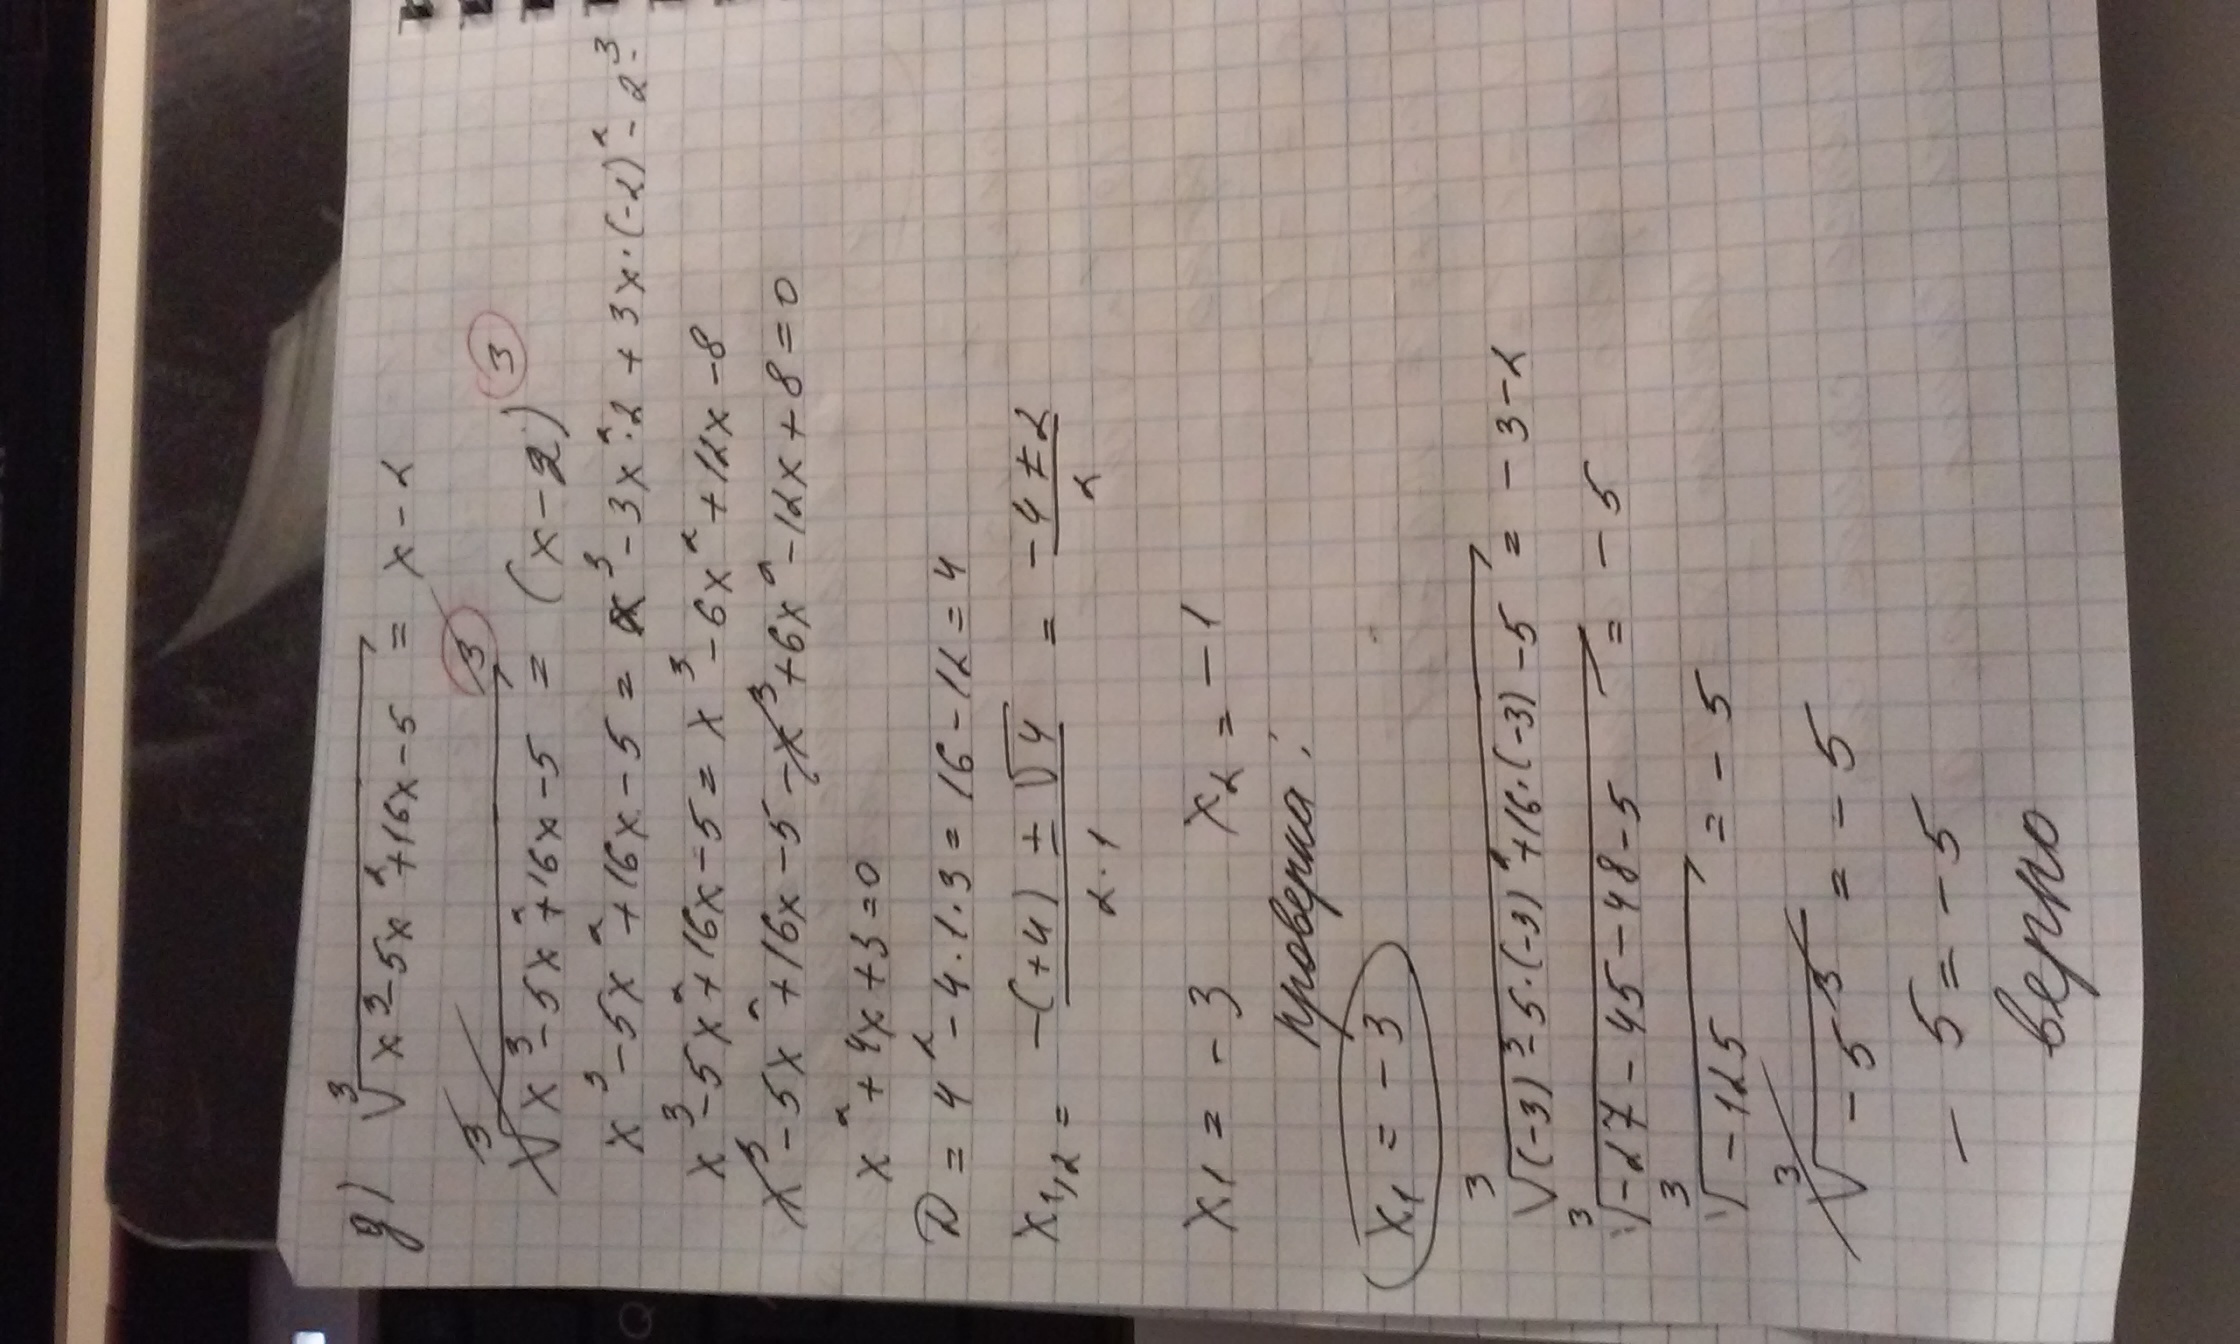 д) ∛(x³-5x²+16x-5) = x-2
∛(x³-5x²+16x-5)³ = (x-2)³
x³-5x²+16x-5 = x³-3x²·2+3x·(-2)²-2³
x³-5x²+16x-5 = x³-6x²+12x-8
x³-5x²+16x-5-x³+6x²-12x+8=0
x²+4x+3=0
D = 4²-4·1·3=16-12=4
x₁,₂ = (-(+4)±√4)/(2·1) = (-4±2)/2
x₁ = -3 x₂ = -1
проверка:
x₁ = -3
∛((-3)³-5·(-3)²+16·(-3)-5) = -3-2
∛(-27-45-48-5) = -5
∛(-125) = -5
∛(-5³) = -5
-5=-5
верно